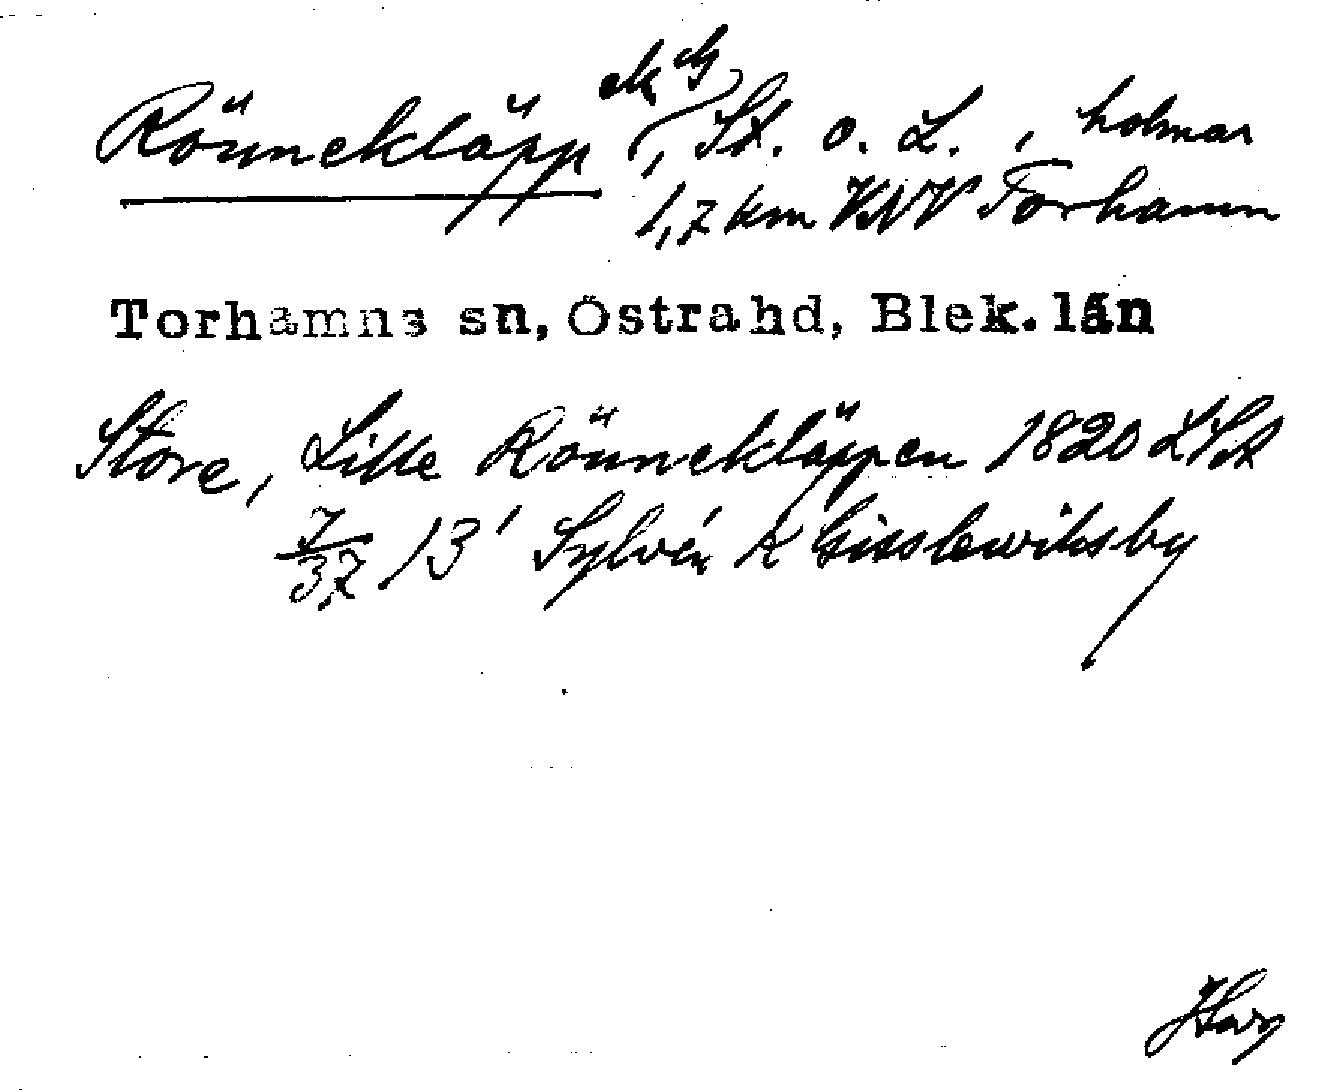 Rönnekläpp, St. o. L., holmar
1,7 km VNV Torhamn
Torhamns sn, Östra hd, Blek. län
Store, Lille Rönnekläppen 1820 LSt
7/37 13' Sylvén k Gisslewiksby